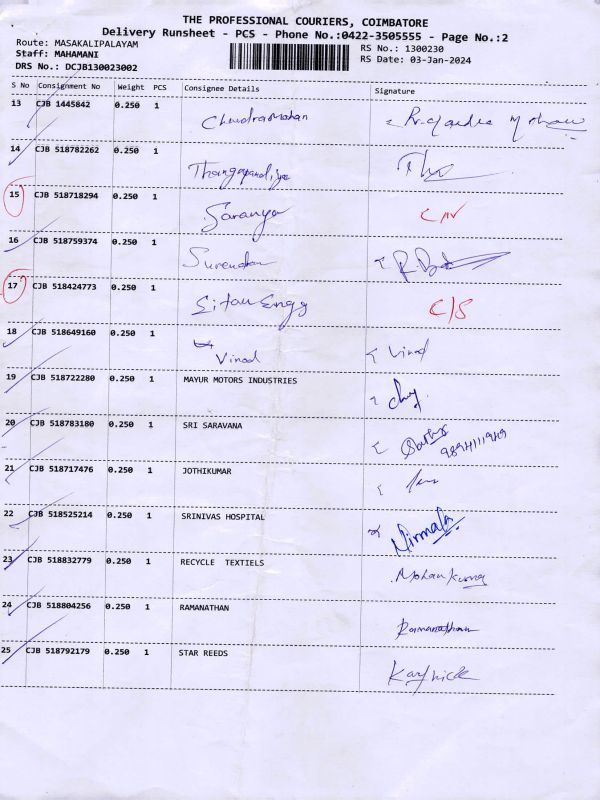 THE PROFESSIONAL COURIERS, COIMBATORE
Delivery Runsheet - PCS - Phone No.:0422-3505555 - Page No.:2
Route: MASAKALIPALAYAM
Staff: MAHAMANI RS No.: 1300230
DRS No.: DCJB130023002 RS Date: 03-Jan-2024
S No Consignment No Weight PCS Consignee Details Signature
13 CJB 1445842 0.250 1 Chandramohan
14 CJB 518782262 0.250 1 Thangapandiya
15 CJB 518718294 0.250 1 Saranya C/N
16 CJB 518759374 0.250 1 Surendran
17 CJB 518424773 0.250 1 Engg C/S
18 CJB 518649160 0.250 1 Vinod Vinod
19 CJB 518722280 0.250 1 MAYUR MOTORS INDUSTRIES
20 CJB 518783180 0.250 1 SRI SARAVANA
21 CJB 518717476 0.250 1 JOTHIKUMAR
22 CJB 518525214 0.250 1 SRINIVAS HOSPITAL Nirmala
23 CJB 518832779 0.250 1 RECYCLE TEXTIELS Mohan Kumar
24 CJB 518804256 0.250 1 RAMANATHAN Ramanathan
25 CJB 518792179 0.250 1 STAR REEDS